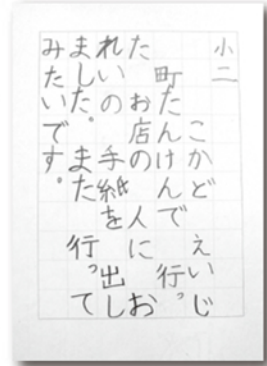 小二
こかど えいじ
町たんけんで 行っ
た お店の 人に お
れいの 手紙を 出し
ました。また 行って
みたいです。